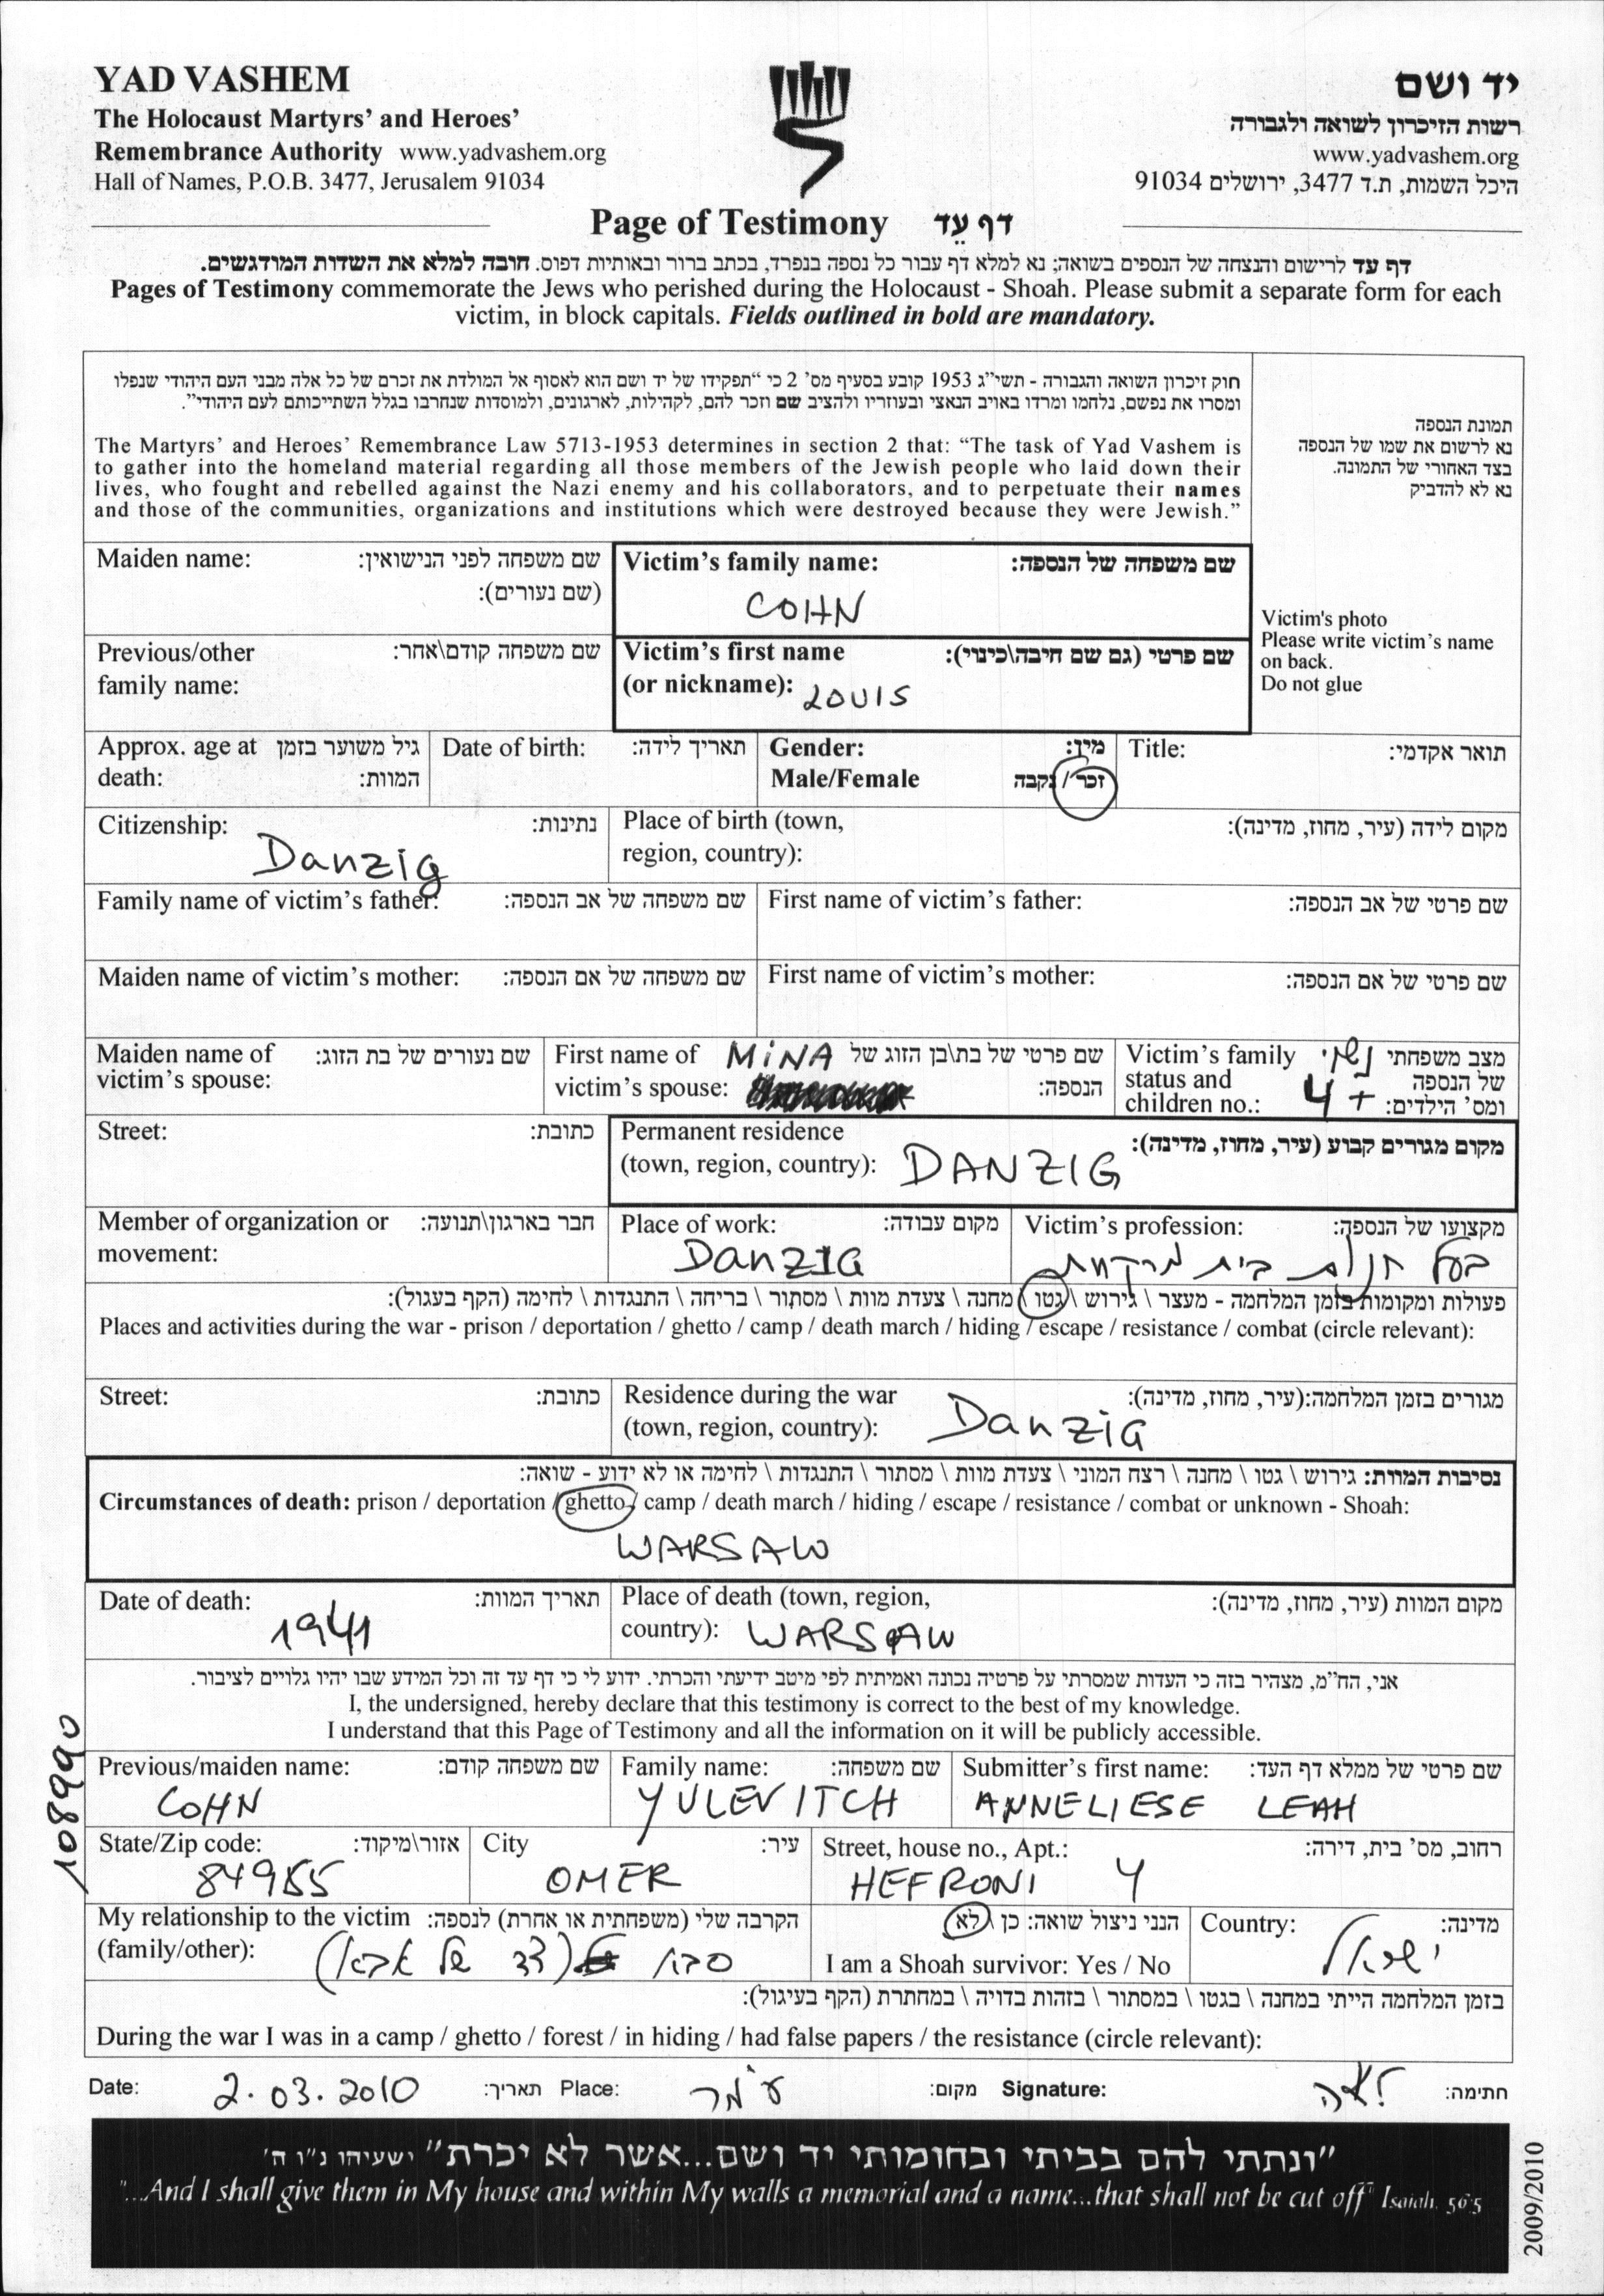 YAD VASHEM
The Holocaust Martyrs' and Heroes'
Remembrance Authority www.yadvashem.org
Hall of Names, P.O.B. 3477, Jerusalem 91034
יד ושם
רשות הזיכרון לשואה ולגבורה
www.yadvashem.org
היכל השמות, ת.ד 3477, ירושלים 91034
Page of Testimony דף עֵד
דף עד לרישום והנצחה של הנספים בשואה; נא למלא דף עבור כל נספה בנפרד, בכתב ברור ובאותיות דפוס. חובה למלא את השדות המודגשים.
Pages of Testimony commemorate the Jews who perished during the Holocaust - Shoah. Please submit a separate form for each
victim, in block capitals. Fields outlined in bold are mandatory.
חוק זיכרון השואה והגבורה - תשי"ג 1953 קובע בסעיף מס' 2 כי "תפקידו של יד ושם הוא לאסוף אל המולדת את זכרם של כל אלה מבני העם היהודי שנפלו
ומסרו את נפשם, נלחמו ומרדו באויב הנאצי ובעוזריו ולהציב שם וזכר להם, לקהילות, לארגונים, ולמוסדות שנחרבו בגלל השתייכותם לעם היהודי".
The Martyrs' and Heroes' Remembrance Law 5713-1953 determines in section 2 that: "The task of Yad Vashem is
to gather into the homeland material regarding all those members of the Jewish people who laid down their
lives, who fought and rebelled against the Nazi enemy and his collaborators, and to perpetuate their names
and those of the communities, organizations and institutions which were destroyed because they were Jewish."
תמונת הנספה
נא לרשום את שמו של הנספה
בצד האחורי של התמונה.
נא לא להדביק
Victim's photo
Please write victim's name
on back.
Do not glue
Maiden name: שם משפחה לפני הנישואין:
(שם נעורים):
Victim's family name: שם משפחה של הנספה:
COHN
Previous/other שם משפחה קודם\אחר:
family name:
Victim's first name שם פרטי (גם שם חיבה\כינוי):
(or nickname): LOUIS
Approx. age at גיל משוער בזמן
death: המוות:
Date of birth: תאריך לידה:
Gender: מין:
Male/Female זכר / נקבה
Title: תואר אקדמי:
Citizenship: נתינות:
Danzig
Place of birth (town, מקום לידה (עיר, מחוז, מדינה):
region, country):
Family name of victim's father: שם משפחה של אב הנספה:
First name of victim's father: שם פרטי של אב הנספה:
Maiden name of victim's mother: שם משפחה של אם הנספה:
First name of victim's mother: שם פרטי של אם הנספה:
Maiden name of שם נעורים של בת הזוג:
victim's spouse:
First name of MiNA שם פרטי של בת\בן הזוג של
victim's spouse: הנספה:
Victim's family נשוי מצב משפחתי
status and של הנספה
children no.: 4 + ומס' הילדים:
Street: כתובת:
Permanent residence מקום מגורים קבוע (עיר, מחוז, מדינה):
(town, region, country): DANZIG
Member of organization or חבר בארגון\תנועה:
movement:
Place of work: מקום עבודה:
DanzIG
Victim's profession: מקצועו של הנספה:
בעל חנות בית מרקחת
פעולות ומקומות בזמן המלחמה - מעצר \ גירוש \ גטו \ מחנה \ צעדת מוות \ מסתור \ בריחה \ התנגדות \ לחימה (הקף בעגול):
Places and activities during the war - prison / deportation / ghetto / camp / death march / hiding / escape / resistance / combat (circle relevant):
Street: כתובת:
Residence during the war מגורים בזמן המלחמה:(עיר, מחוז, מדינה):
(town, region, country): DanziG
נסיבות המוות: גירוש \ גטו \ מחנה \ רצח המוני \ צעדת מוות \ מסתור \ התנגדות \ לחימה או לא ידוע - שואה:
Circumstances of death: prison / deportation / ghetto / camp / death march / hiding / escape / resistance / combat or unknown - Shoah:
WARSAW
Date of death: תאריך המוות:
1941
Place of death (town, region, מקום המוות (עיר, מחוז, מדינה):
country): WARSAW
אני, הח"מ, מצהיר בזה כי העדות שמסרתי על פרטיה נכונה ואמיתית לפי מיטב ידיעתי והכרתי. ידוע לי כי דף עד זה וכל המידע שבו יהיו גלויים לציבור.
I, the undersigned, hereby declare that this testimony is correct to the best of my knowledge.
I understand that this Page of Testimony and all the information on it will be publicly accessible.
108990
Previous/maiden name: שם משפחה קודם:
COHN
Family name: שם משפחה:
YULEVITCH
Submitter's first name: שם פרטי של ממלא דף העד:
ANNELIESE LEAH
State/Zip code: אזור\מיקוד:
84965
City עיר:
OMER
Street, house no., Apt.: רחוב, מס' בית, דירה:
HEFRONI 4
My relationship to the victim הקרבה שלי (משפחתית או אחרת) לנספה:
(family/other): סבי (צד של אבא)
הנני ניצול שואה: כן \ לא
I am a Shoah survivor: Yes / No
Country: מדינה:
ישראל
בזמן המלחמה הייתי במחנה \ בגטו \ במסתור \ בזהות בדויה \ במחתרת (הקף בעיגול):
During the war I was in a camp / ghetto / forest / in hiding / had false papers / the resistance (circle relevant):
Date: 2.03.2010 תאריך: Place: עומר מקום: Signature: לאה חתימה:
"ונתתי להם בביתי ובחומותי יד ושם...אשר לא יכרת" ישעיהו נ"ו ה'
"...And I shall give them in My house and within My walls a memorial and a name...that shall not be cut off" Isaiah, 56:5
2009/2010